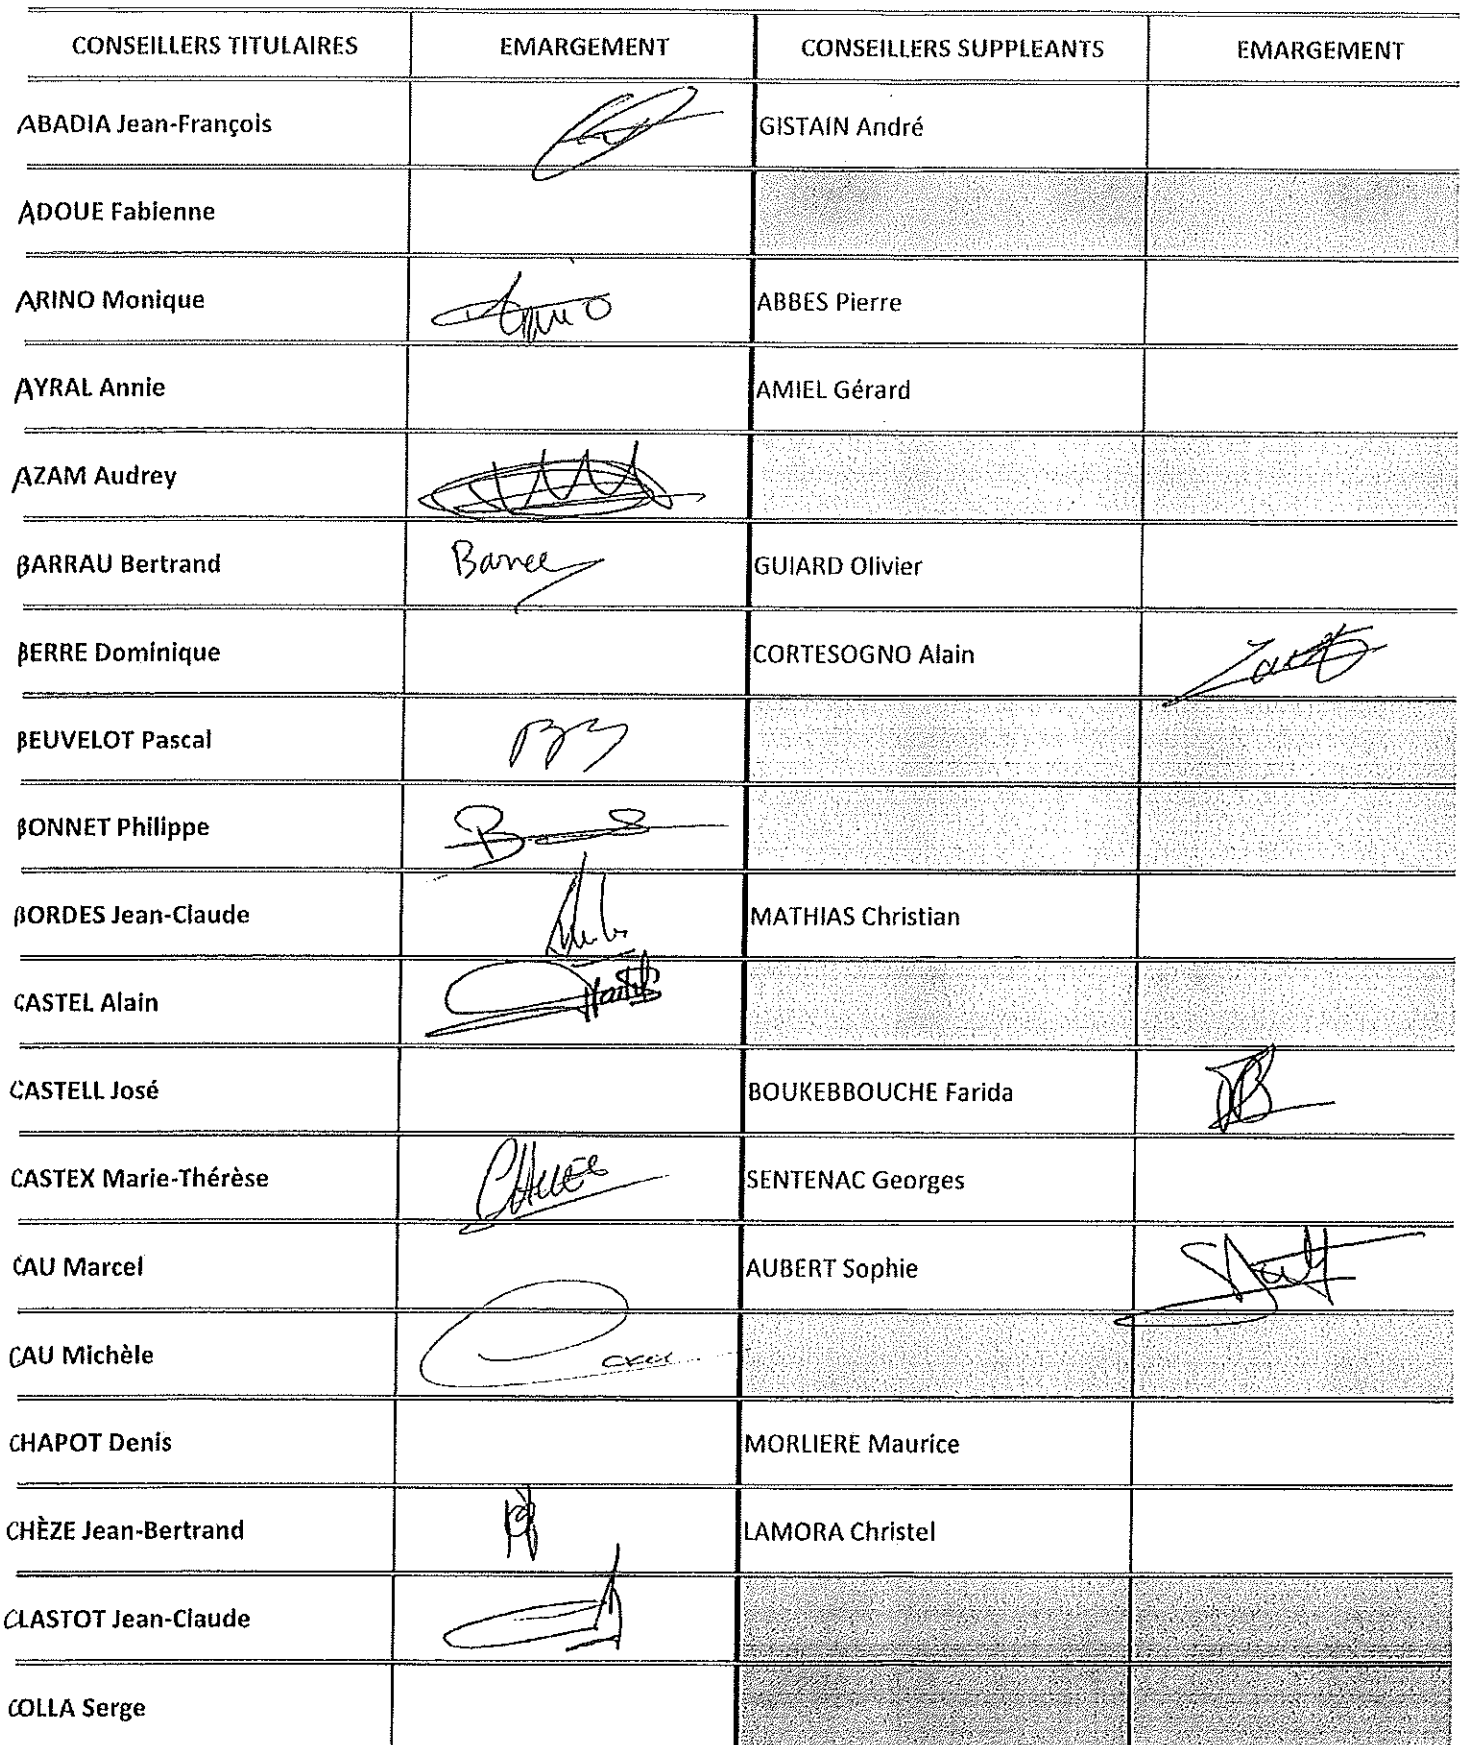 CONSEILLERS TITULAIRES EMARGEMENT CONSEILLERS SUPPLEANTS EMARGEMENT
ABADIA Jean-François GISTAIN André
ADOUE Fabienne
ARINO Monique ABBES Pierre
AYRAL Annie AMIEL Gérard
AZAM Audrey
BARRAU Bertrand GUIARD Olivier
BERRE Dominique CORTESOGNO Alain
BEUVELOT Pascal
BONNET Philippe
BORDES Jean-Claude MATHIAS Christian
CASTEL Alain
CASTELL José BOUKEBBOUCHE Farida
CASTEX Marie-Thérèse SENTENAC Georges
CAU Marcel AUBERT Sophie
CAU Michèle
CHAPOT Denis MORLIERE Maurice
CHÈZE Jean-Bertrand LAMORA Christel
CLASTOT Jean-Claude
COLLA Serge